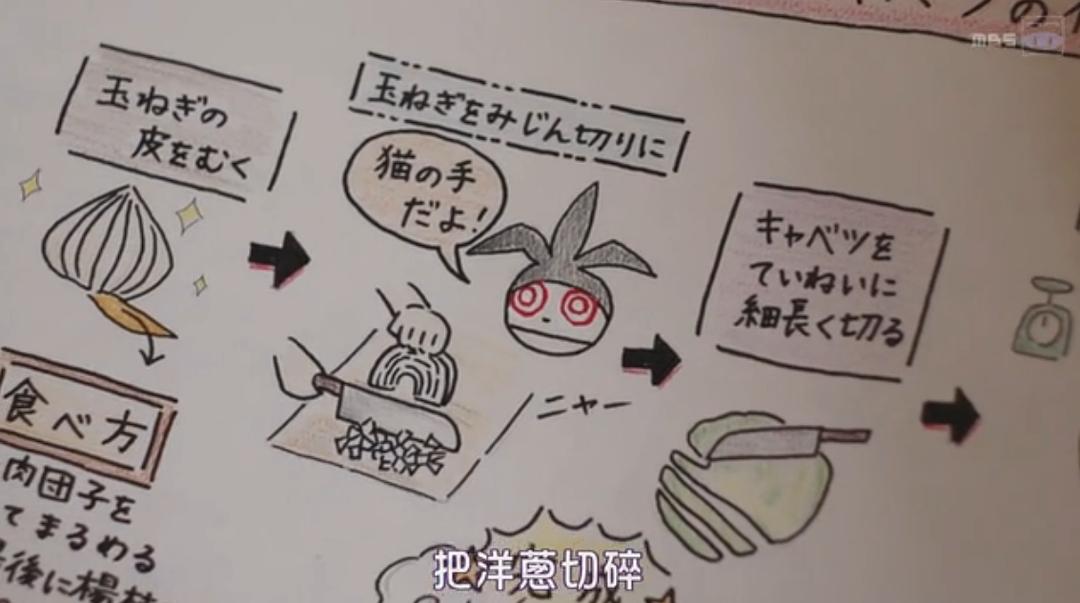 MBS
玉ねぎの
皮をむく
玉ねぎをみじん切りに
猫の手
だよ!
キャベツを
ていねいに
細長く切る
ニャー
食べ方
肉団子を
てまるめる
後に楊枝
把洋蔥切碎